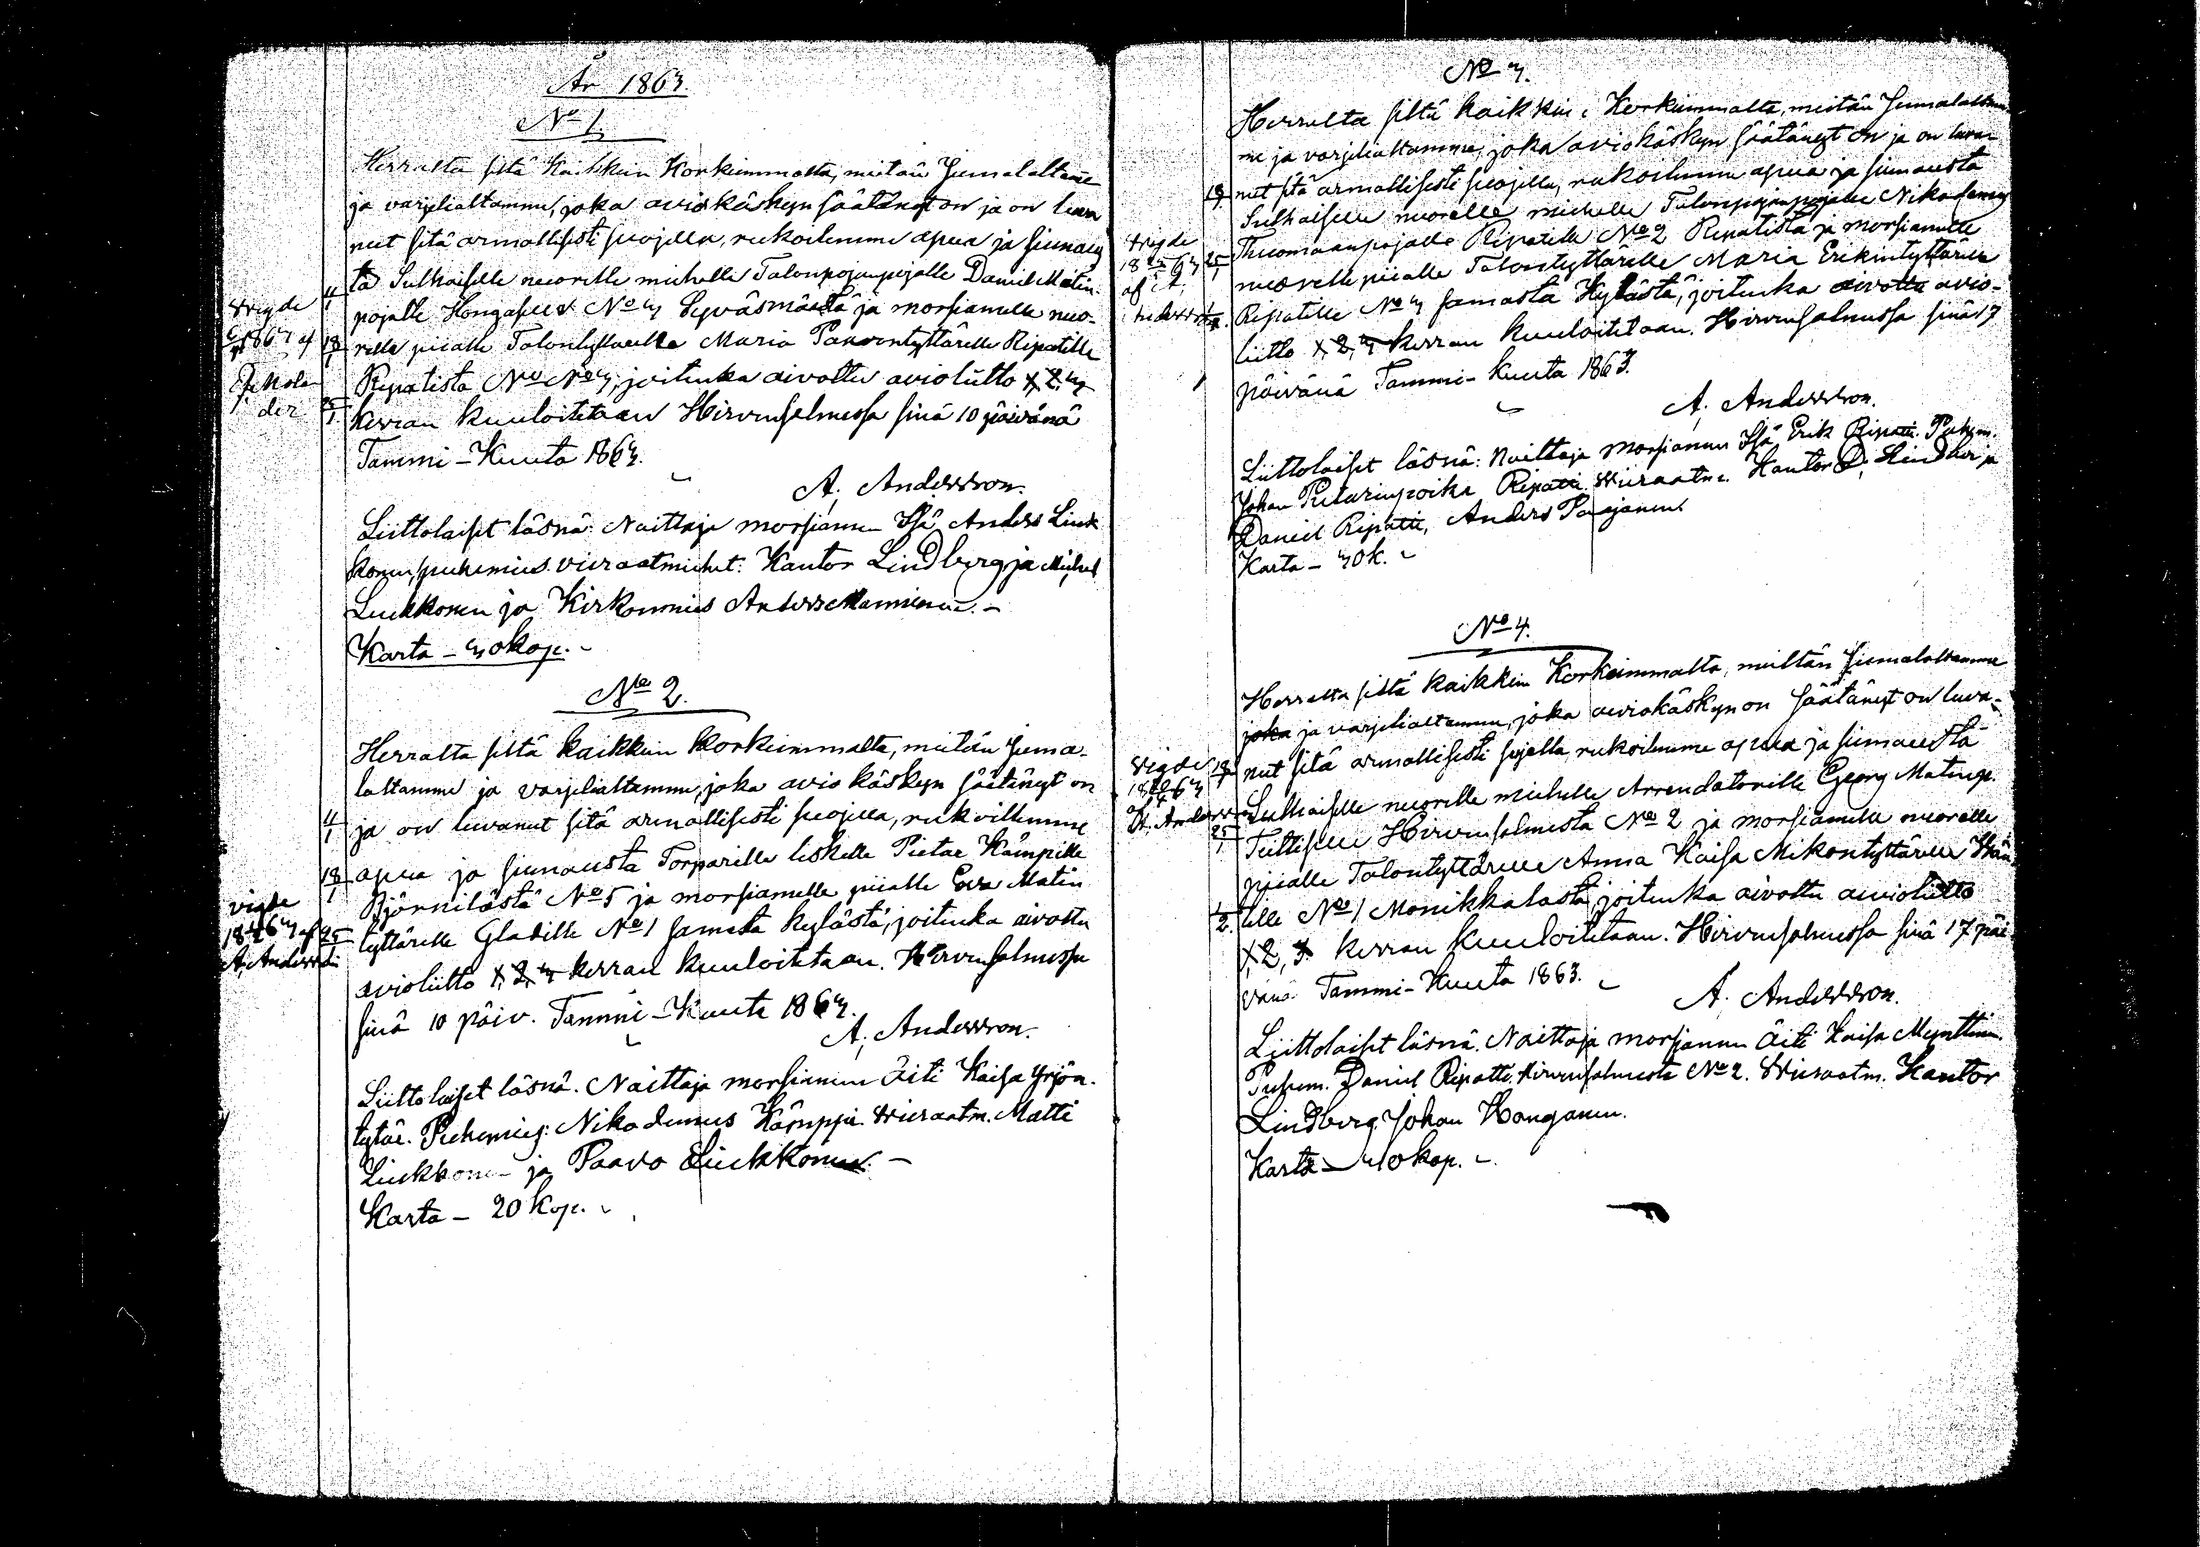 År 1863.
No 1.
Herralta siltä Kaikkein Korkeimmalta, meitän Jumalaltame
ja varjeliattamme, joka aviokäskyn säätänyt on ja on luva
nut sitä armollisesti suojella, rukoilemme apua ja siunaus
4/1 ta Sulhaiselle nuorelle miehelle Talonpojanpojalle Daniel Matin
pojalle Hongaselle No 3 Syväsmäeltä ja morsiamelle nuo-
Vigde 1863 af
18/1 relle piialle Talontyttärelle Maria Paavontyttärelle Ripatille
Ripatista No No 3, joitenka aivottu avioliitto 1, 2, 3
25/1 kerran kuuloitetaan Hirvensalmessa sinä 10 päivänä
Tammi-Kuuta 1863.
A. Andersson.
Liittolaiset läsnä: Naittaja morsiamen Isä Anders Liuk
konen, puhemies. vieraatmiehet: Kantor Lindberg ja Michel
Liukkonen ja Kirkonmies Anders Manninen.-
Karta - 30 kop.
No 2.
Herralta siltä kaikkein korkeimmalta, meitän Juma-
laltamme ja varjelialtamme, joka avio käskyn säätänyt on
4/1 ja on luvanut sitä armollisesti suojella, rukoillemme
18/1 apua ja siunausta Torparille leskelle Pietar Kämpille
Björnilästä No 5 ja morsiamelle piialle Eva Matin
vigde 18 63 af A. Andersson
25/1 tyttärelle Gladille No 1 samasta kylästä, joitenka aivottu
avioliitto 1, 2, 3 kerran kuuloitetaan. Hirvensalmessa
sinä 10 päiv. Tammi-Kuuta 1863.
A. Andersson.
Liittolaiset läsnä. Naittaja morsiamen äiti Kaisa Yrjön-
tytär. Puhemies: Nikodemus Kämppi. Vieraatm. Matti
Liukkonen ja Paavo Liukkonen. -
Karta - 20 kop.
No 3.
Herralta siltä kaikkein Korkeimmalta, meitän Jumalaltam-
me ja varjelialtamme, joka aviokäskyn säätänyt on ja on luva-
18/1 nut sitä armollisesti suojella, rukoilemme apua ja siunausta
Sulhaiselle nuorelle miehelle Talonpojanpojalle Nikodemus
Vigde 18 63 af A. Andersson
25/1 Thuomaanpojalle Ripatille No 2 Ripatista ja morsiamelle
nuorelle piialle Talontyttärelle Maria Erikintyttärelle
Ripatille No 3 samasta Kylästä, joitenka aivottu avio-
liitto 1, 2, 3 kerran kuuloitetaan. Hirvensalmessa sinä 17
päivänä Tammi-Kuuta 1863.
A. Andersson.
Liittolaiset läsnä: Naittaja morsiamen Isä Erik Ripatti. Puhem.
Johan Pietarinpoika Ripatti. Vieraatm. Kantor Lindber ja
Daniel Ripatti, Anders Paajanen
Karta - 30 k.
No 4.
Herralta siltä kaikkein Korkeimmalta, meitän Jumalaltamme
joka ja varjelialtamme, joka aviokäskyn on säätänyt on luva-
18/1 nut sitä armollisesti sojella, rukoilemme apua ja siunausta
Vigde 18 63 af A. Andersson
25/1 Sulhaiselle nuorelle miehelle Arrendatorille Georg Matinp.
Teittiselle Hirvensalmesta No 2 ja morsiamelle nuorelle
piialle Talontyttärelle Anna Kaisa Mikontyttärelle
1/2 tille No 1 Monikkalasta, joitenka aivottu avioliitto
1, 2, 3 kerran kuuloitetaan. Hirvensalmessa sinä 17 päi
vänä Tammi-Kuuta 1863.
A. Andersson.
Liittolaiset läsnä. Naittaja morsiamen Äiti Kaisa Mynttinen.
Puhem. Daniel Ripatti Hirvensalmesta No 2. Vieraatm. Kantor
Lindberg Johan Honganen.
Karta - 40 kop.